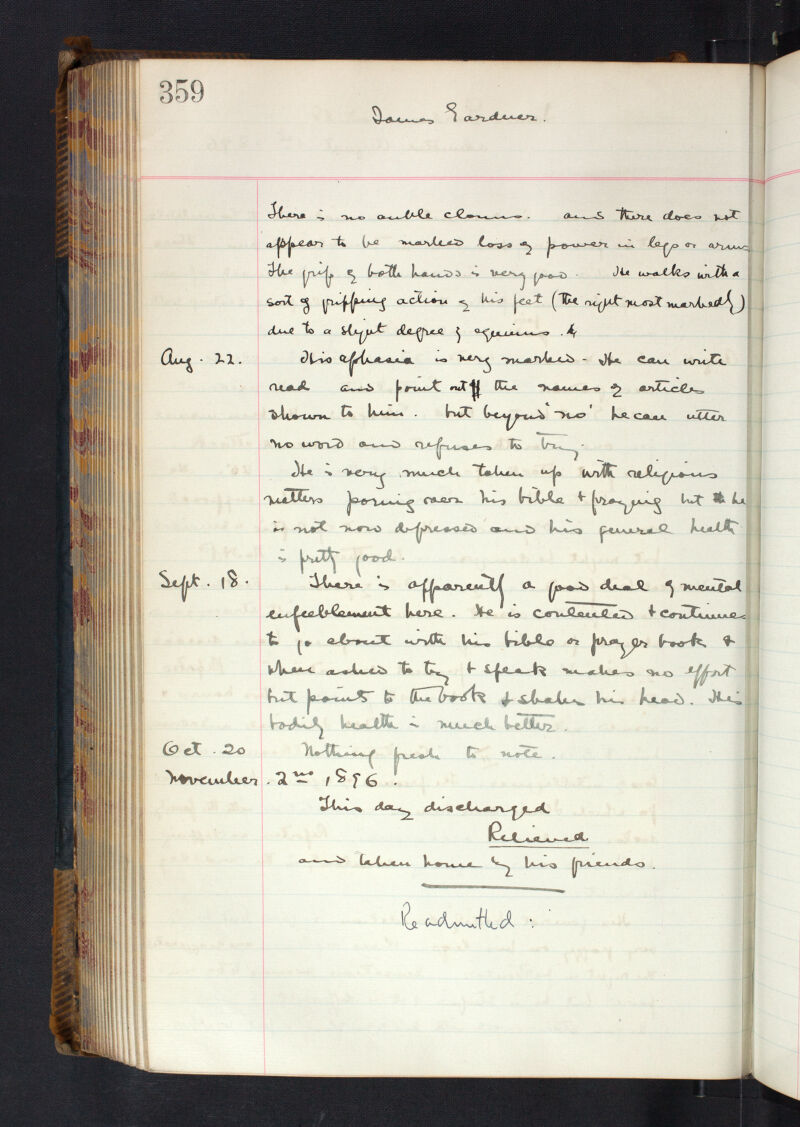 359
James Gardner.
There is no ankle clonus. and there does not
appear to be marked loss of power in legs or arms
The grip of both hands is very good. He walks with a
sort of gripping action of his feet (the right most markedly)
due to a slight degree of equinus.
Aug. 22. His aphasia is very marked - He can write
read and point out the names of articles
shown to him. but beyond 'no' he can utter
no word and refuses to try.
He is very much taken up with religious
matters poring over his bible & praying but he
is not now depressed and his general health
is pretty good.
Sept. 18. There is apparently a good deal of mental
enfeeblement here. He is contented & continues
to go about with his bible or prayer book &
when asked to try & speak makes no effort
but points to the book & shakes his head. His
bodily health is much better.
Oct. 20 Nothing fresh to note.
November. 2nd 1896.
This day discharged
Relieved
and taken home by his friends.
Readmitted :